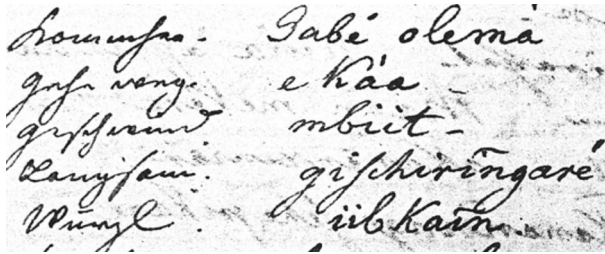 komm her. Gabé olemá
gehe weg. e Káa
geschwind. mbiit
Langsam. gischirin̄garé
Wurzl. üb Kain̄.